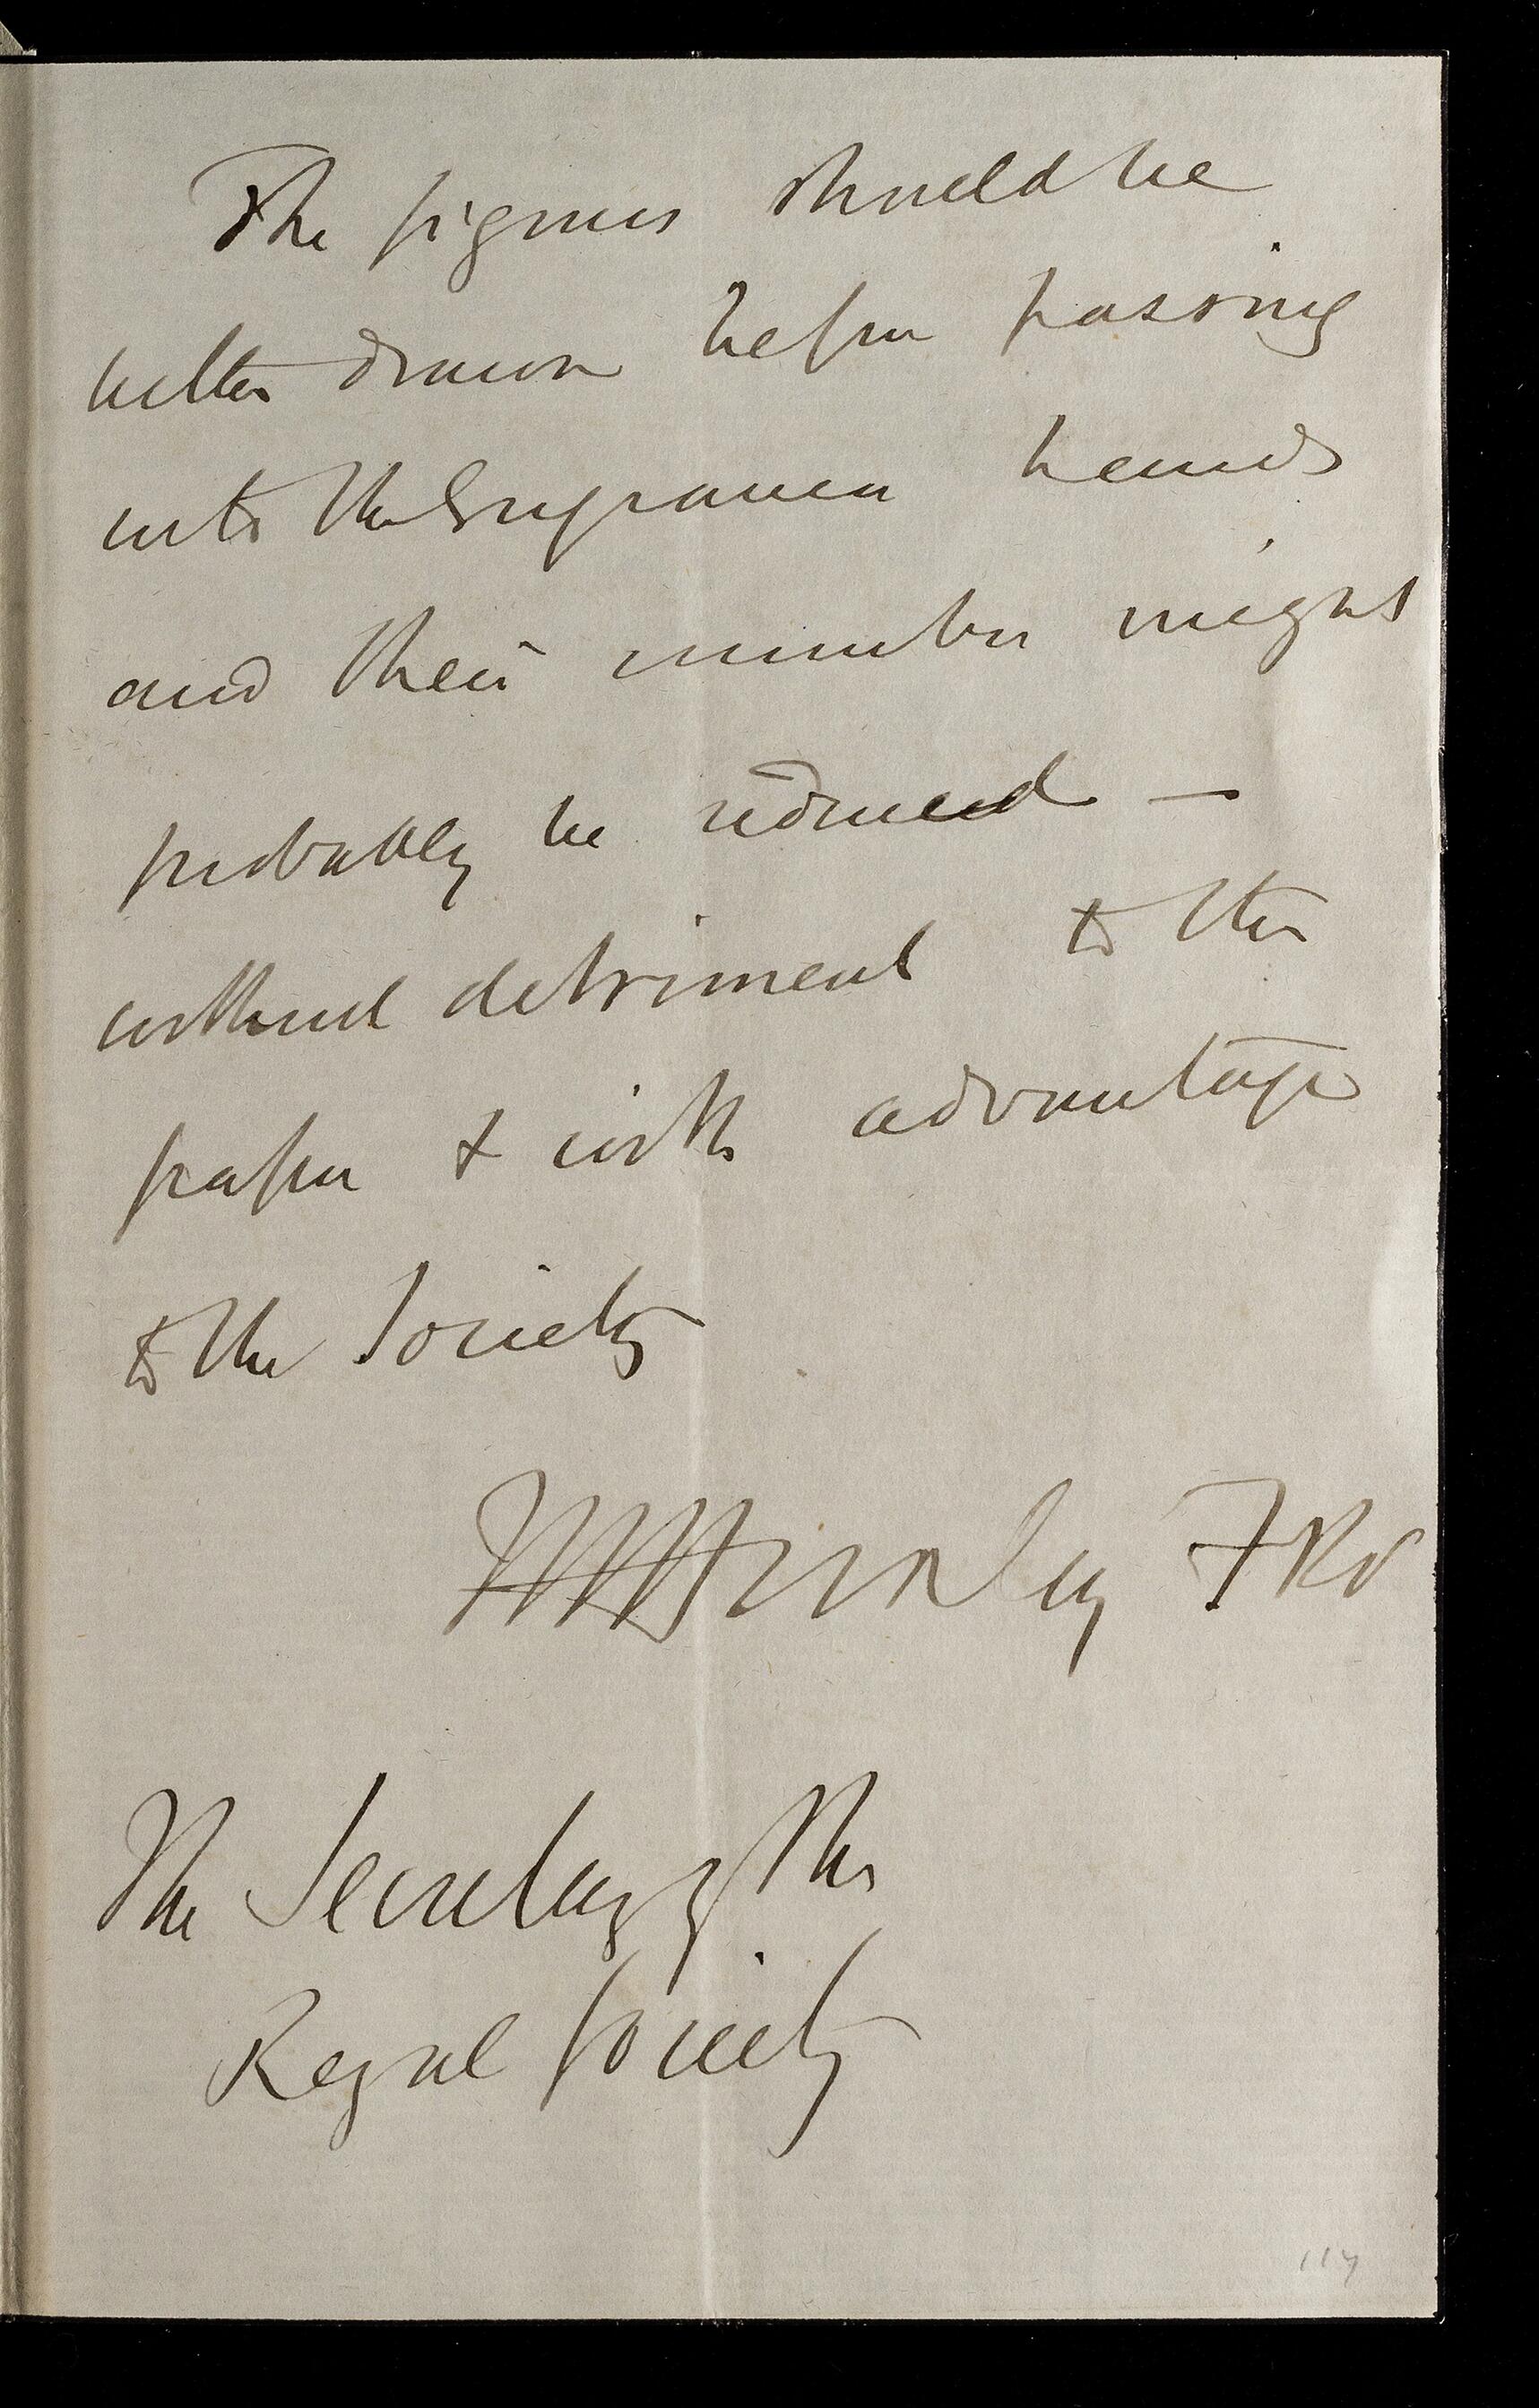 The figures should be
better drawn before passing
into the Engravers hands
and their number might
probably be reduced —
without detriment to the
paper & with advantage
to the Society
THHuxley FRS
The Secretary of the
Royal Society
117